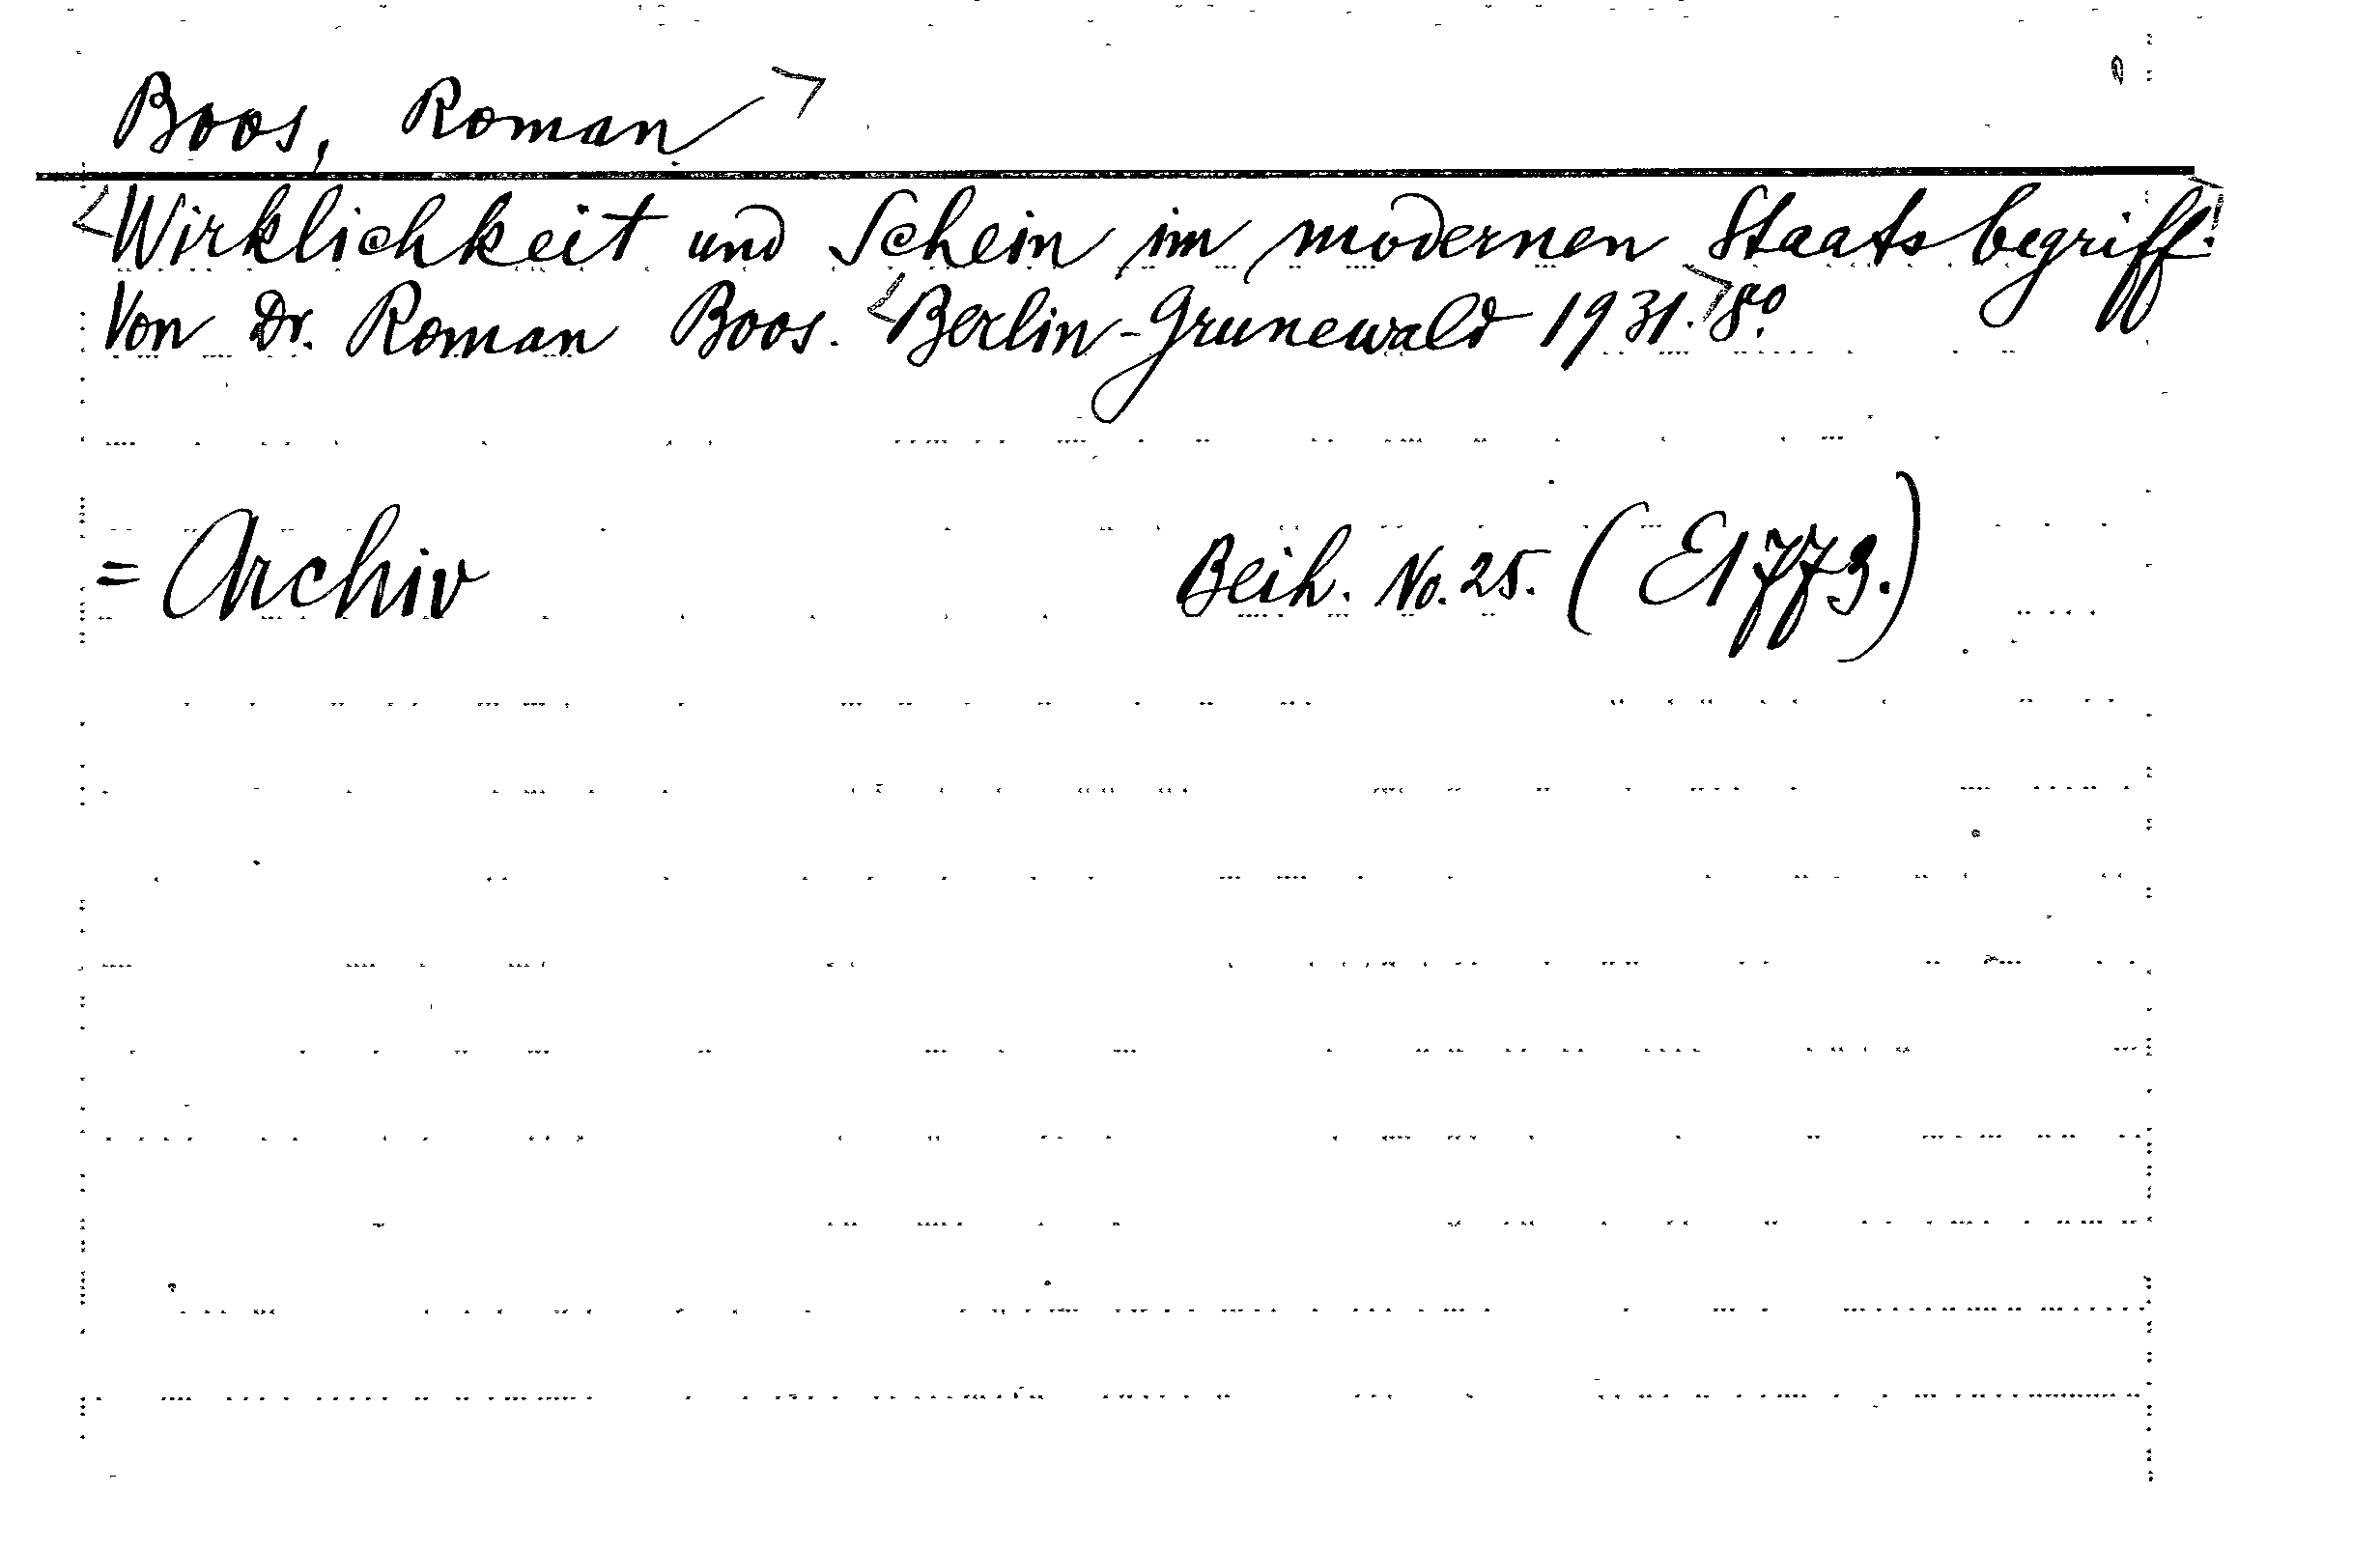 Boos, Roman
Wirklichkeit und Schein im modernen Staatsbegriff.
Von Dr. Roman Boos. Berlin-Grunewald 1931. 8º.
= Archiv Beih. No. 25. (E1773.)